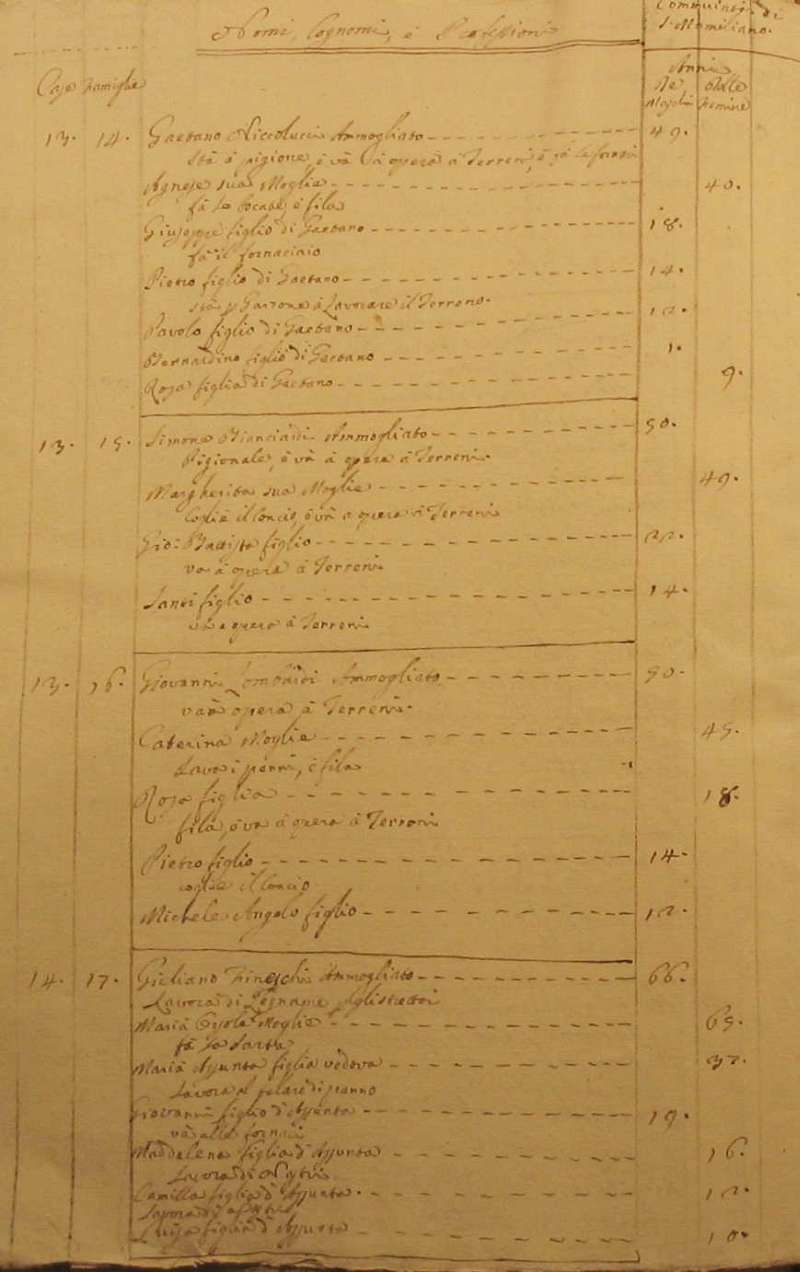 Nomi, Cognomi, e Professioni
di
S. Mamiliano.
Case Famiglie
Anni
De Maschi
Delle Femine
13. 14. Gaetano Niccolucci Ammogliato 49.
sta a pigione, e và a opera a Terreni, e
Agnese sua Moglie 40.
fà la e fila
Giuseppe figlio di Gaetano 18.
fà il fornaciaio
Pietro figlio di Gaetano 14.
stà p Garzone a lavorare il Terreno.
Pavolo figlio di Gaetano 12.
Bernardino figlio di Gaetano 1.
Rosa figlia di Gaetano 9.
13. 15. Simone Bianciardi Ammogliato 50.
Pigionale, e và à opera à Terreni.
Margherita sua Moglie 49.
Coglie il Concio, e và a opera à Terreni
Gio: Batista figlio 22.
va à opera à Terreni
Santi figlio 14.
và a opera à Terreni
13. 16. Giovanni Ammogliato 50.
và à opera à Terreni.
Caterina Moglie 45.
Lava i panni, e fila
Rosa figlia 18.
fila, e va à opera à Terreni
Pietro figlio 14.
coglie il Concio
Michele Angelo figlio 12.
14. 17. Giuliano Fineschi Ammogliato 66.
Lavora di Legname
Maria Moglie 65.
fà la Sarta
Maria Assunta figlia vedova 37.
Lavora al telare di panno
Giovanni figlio d'Assunta 19.
và alle fornaci
Maddalena figlia d'Assunta 16.
Lavora di
Camilla figlia d'Assunta 12.
Lavora di
Luisa figlia d'Assunta 10.